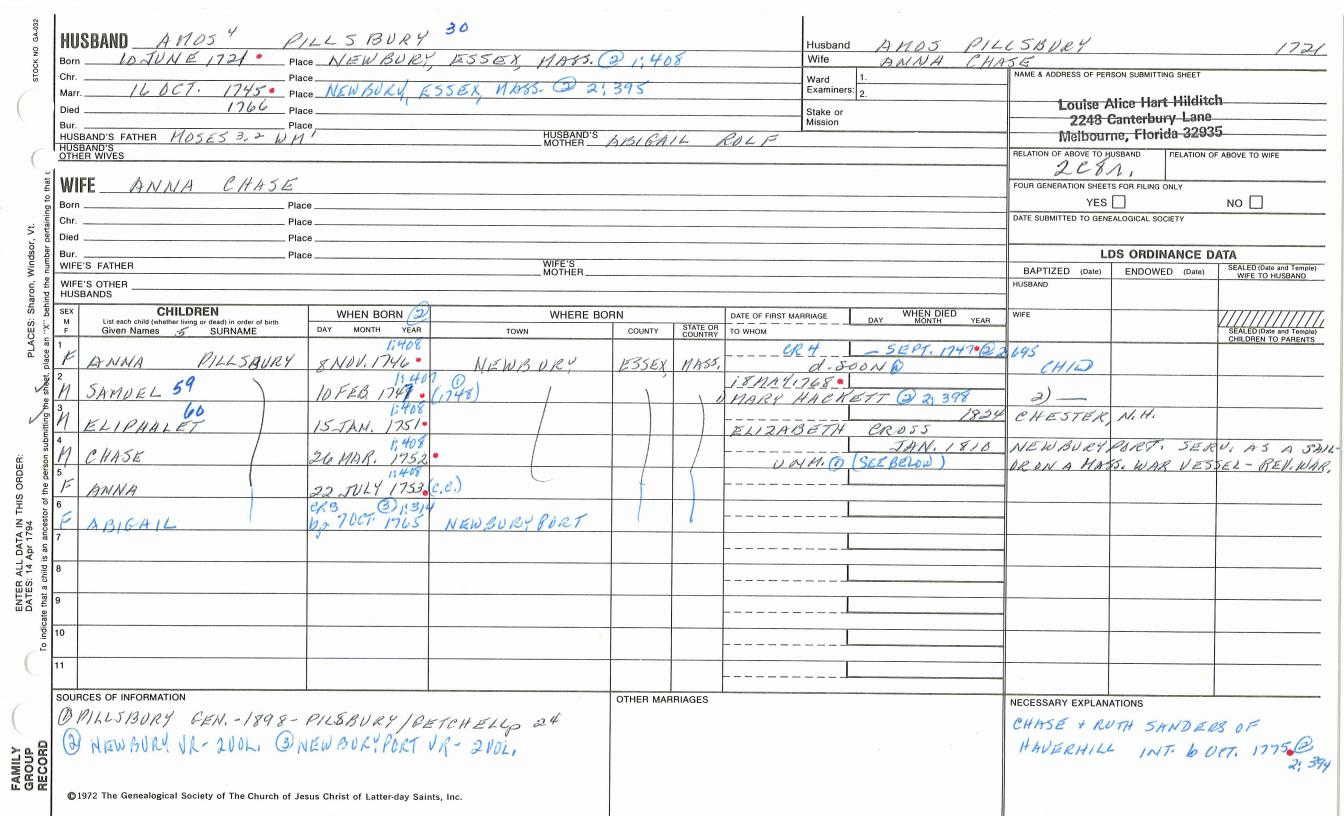 STOCK NO. GA-032
HUSBAND AMOS 4 PILLSBURY 30
Born 10 JUNE 1721 Place NEWBURY, ESSEX, MASS. ② 1;408
Chr. Place
Marr. 16 OCT. 1745 Place NEWBURY, ESSEX, MASS. ② 2;395
Died 1766 Place
Bur. Place
HUSBAND'S FATHER MOSES 3,2 WM 1 HUSBAND'S MOTHER ABIGAIL ROLF
HUSBAND'S OTHER WIVES
Husband AMOS PILLSBURY 1721
Wife ANNA CHASE
Ward Examiners: 1.
2.
Stake or Mission
NAME & ADDRESS OF PERSON SUBMITTING SHEET
Louise Alice Hart Hilditch
2248 Canterbury Lane
Melbourne, Florida 32935
RELATION OF ABOVE TO HUSBAND RELATION OF ABOVE TO WIFE
2C8r.
FOUR GENERATION SHEETS FOR FILING ONLY
YES NO
DATE SUBMITTED TO GENEALOGICAL SOCIETY
WIFE ANNA CHASE
Born Place
Chr. Place
Died Place
Bur. Place
WIFE'S FATHER WIFE'S MOTHER
WIFE'S OTHER HUSBANDS
LDS ORDINANCE DATA
BAPTIZED (Date) ENDOWED (Date) SEALED (Date and Temple) WIFE TO HUSBAND
HUSBAND
WIFE
SEALED (Date and Temple) CHILDREN TO PARENTS
SEX M F
CHILDREN
List each child (whether living or dead) in order of birth
Given Names 5 SURNAME
WHEN BORN ②
DAY MONTH YEAR
WHERE BORN
TOWN COUNTY STATE OR COUNTRY
DATE OF FIRST MARRIAGE
TO WHOM
WHEN DIED
DAY MONTH YEAR
1;408 CR4 — SEPT. 1747 ② 2;695
1 F ANNA PILLSBURY 8 NOV. 1746 NEWBURY ESSEX, MASS. d. SOON ① CHILD
1;407 ① 18 MAY 1768
2 M SAMUEL 59 10 FEB 1747 (1748) MARY HACKETT ② 2;398 2) —
60 1;408 1824 CHESTER, N.H.
3 M ELIPHALET 15 JAN. 1751 ELIZABETH CROSS
1;408 JAN. 1810 NEWBURYPORT. SERV. AS A SAIL-
4 M CHASE 26 MAR. 1752 UNM. ① (SEE BELOW) OR ON A MASS. WAR VESSEL - REV. WAR.
1;408
5 F ANNA 22 JULY 1753 (C.C.)
CRB ③ 1;314
6 F ABIGAIL bp 7 OCT. 1765 NEWBURYPORT
7
8
9
10
11
SOURCES OF INFORMATION
① PILLSBURY GEN. -1898- PILSBURY/GETCHELL p 24
② NEWBURY VR- 2VOL. ③ NEWBURYPORT VR- 2VOL.
OTHER MARRIAGES
NECESSARY EXPLANATIONS
CHASE + RUTH SANDERS OF
HAVERHILL INT. 6 OCT. 1775 ②
2;394
©1972 The Genealogical Society of The Church of Jesus Christ of Latter-day Saints, Inc.
PLACES: Sharon, Windsor, Vt.
ENTER ALL DATA IN THIS ORDER:
DATES: 14 Apr 1794
To indicate that a child is an ancestor of the person submitting the sheet, place an "X" behind the number pertaining to that
FAMILY GROUP RECORD